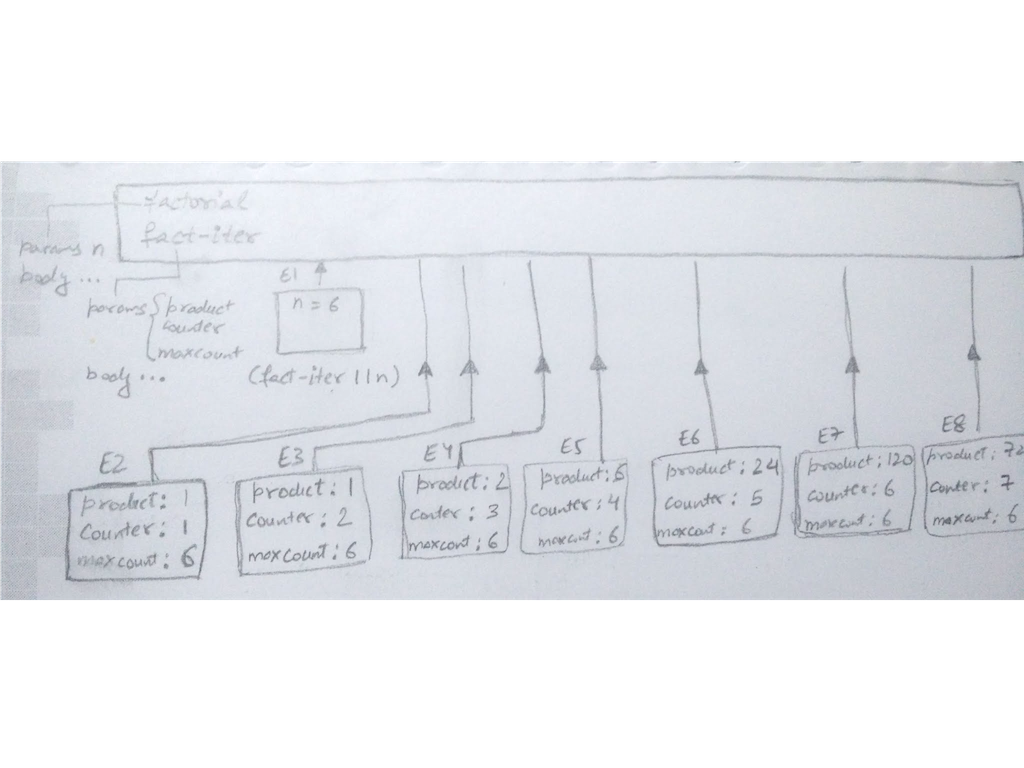 factorial
fact-iter
params n
body ...
params { product
counter
maxcount
body ...
E1
n = 6
(fact-iter 1 1 n)
E2
product: 1
Counter: 1
maxcount: 6
E3
product: 1
Counter: 2
maxcount: 6
E4
product: 2
conter: 3
maxcont: 6
E5
product: 6
counter: 4
maxcont: 6
E6
product: 24
counter: 5
maxcont: 6
E7
product: 120
counter: 6
maxcont: 6
E8
product: 72
conter: 7
maxcont: 6